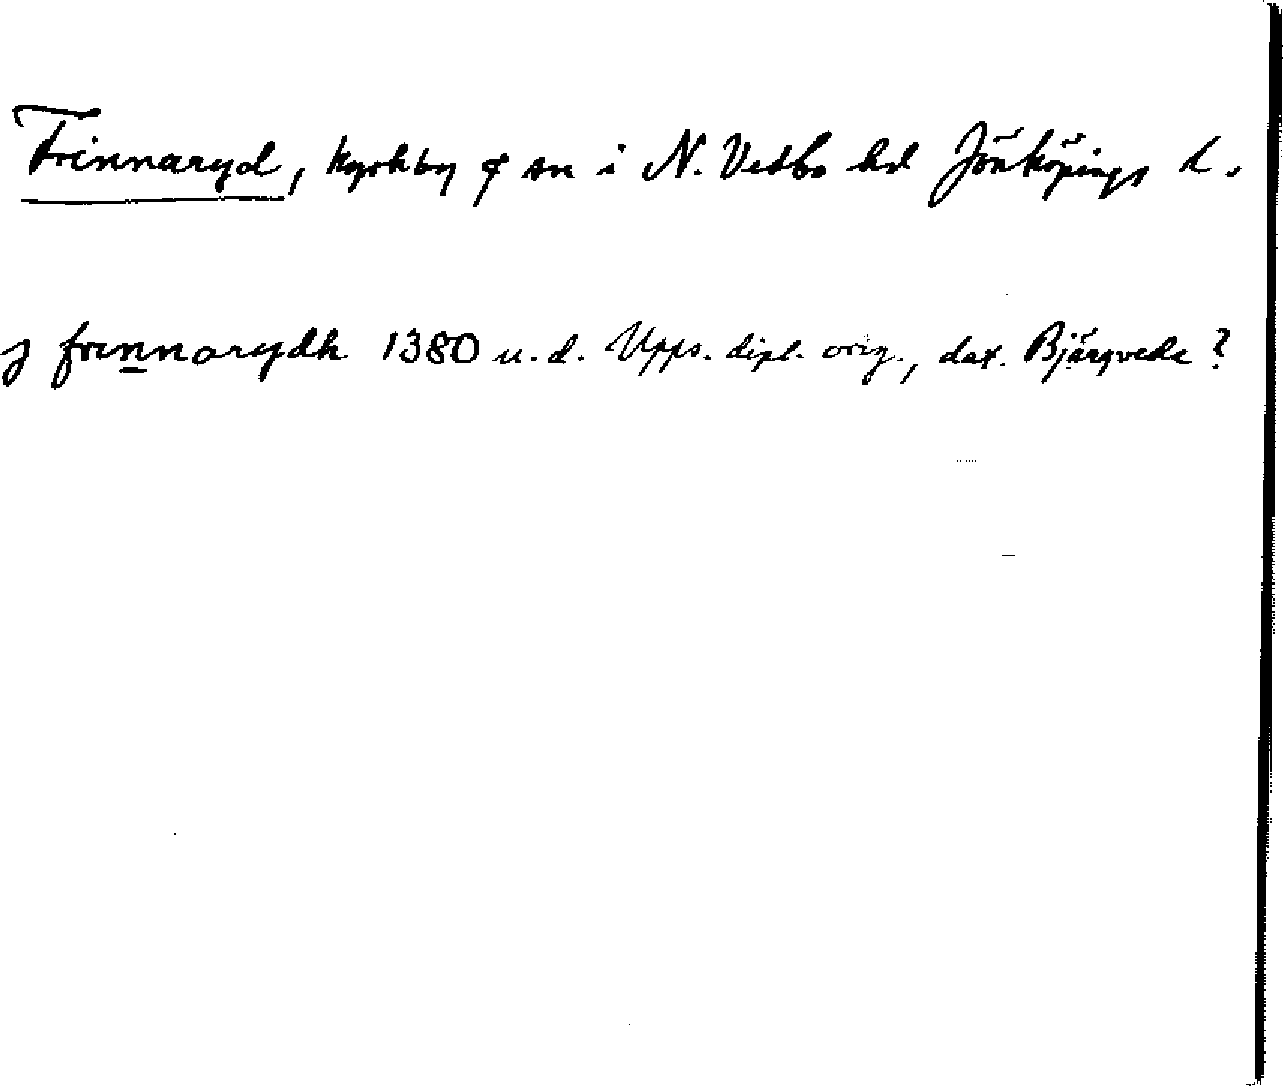 Frinnaryd, kyrkby & sn i N. Vedbo hd Jönköpings l.
j frinnarydh 1380 u.d. Upps. dipl. orig., dat. Bjärgvede?